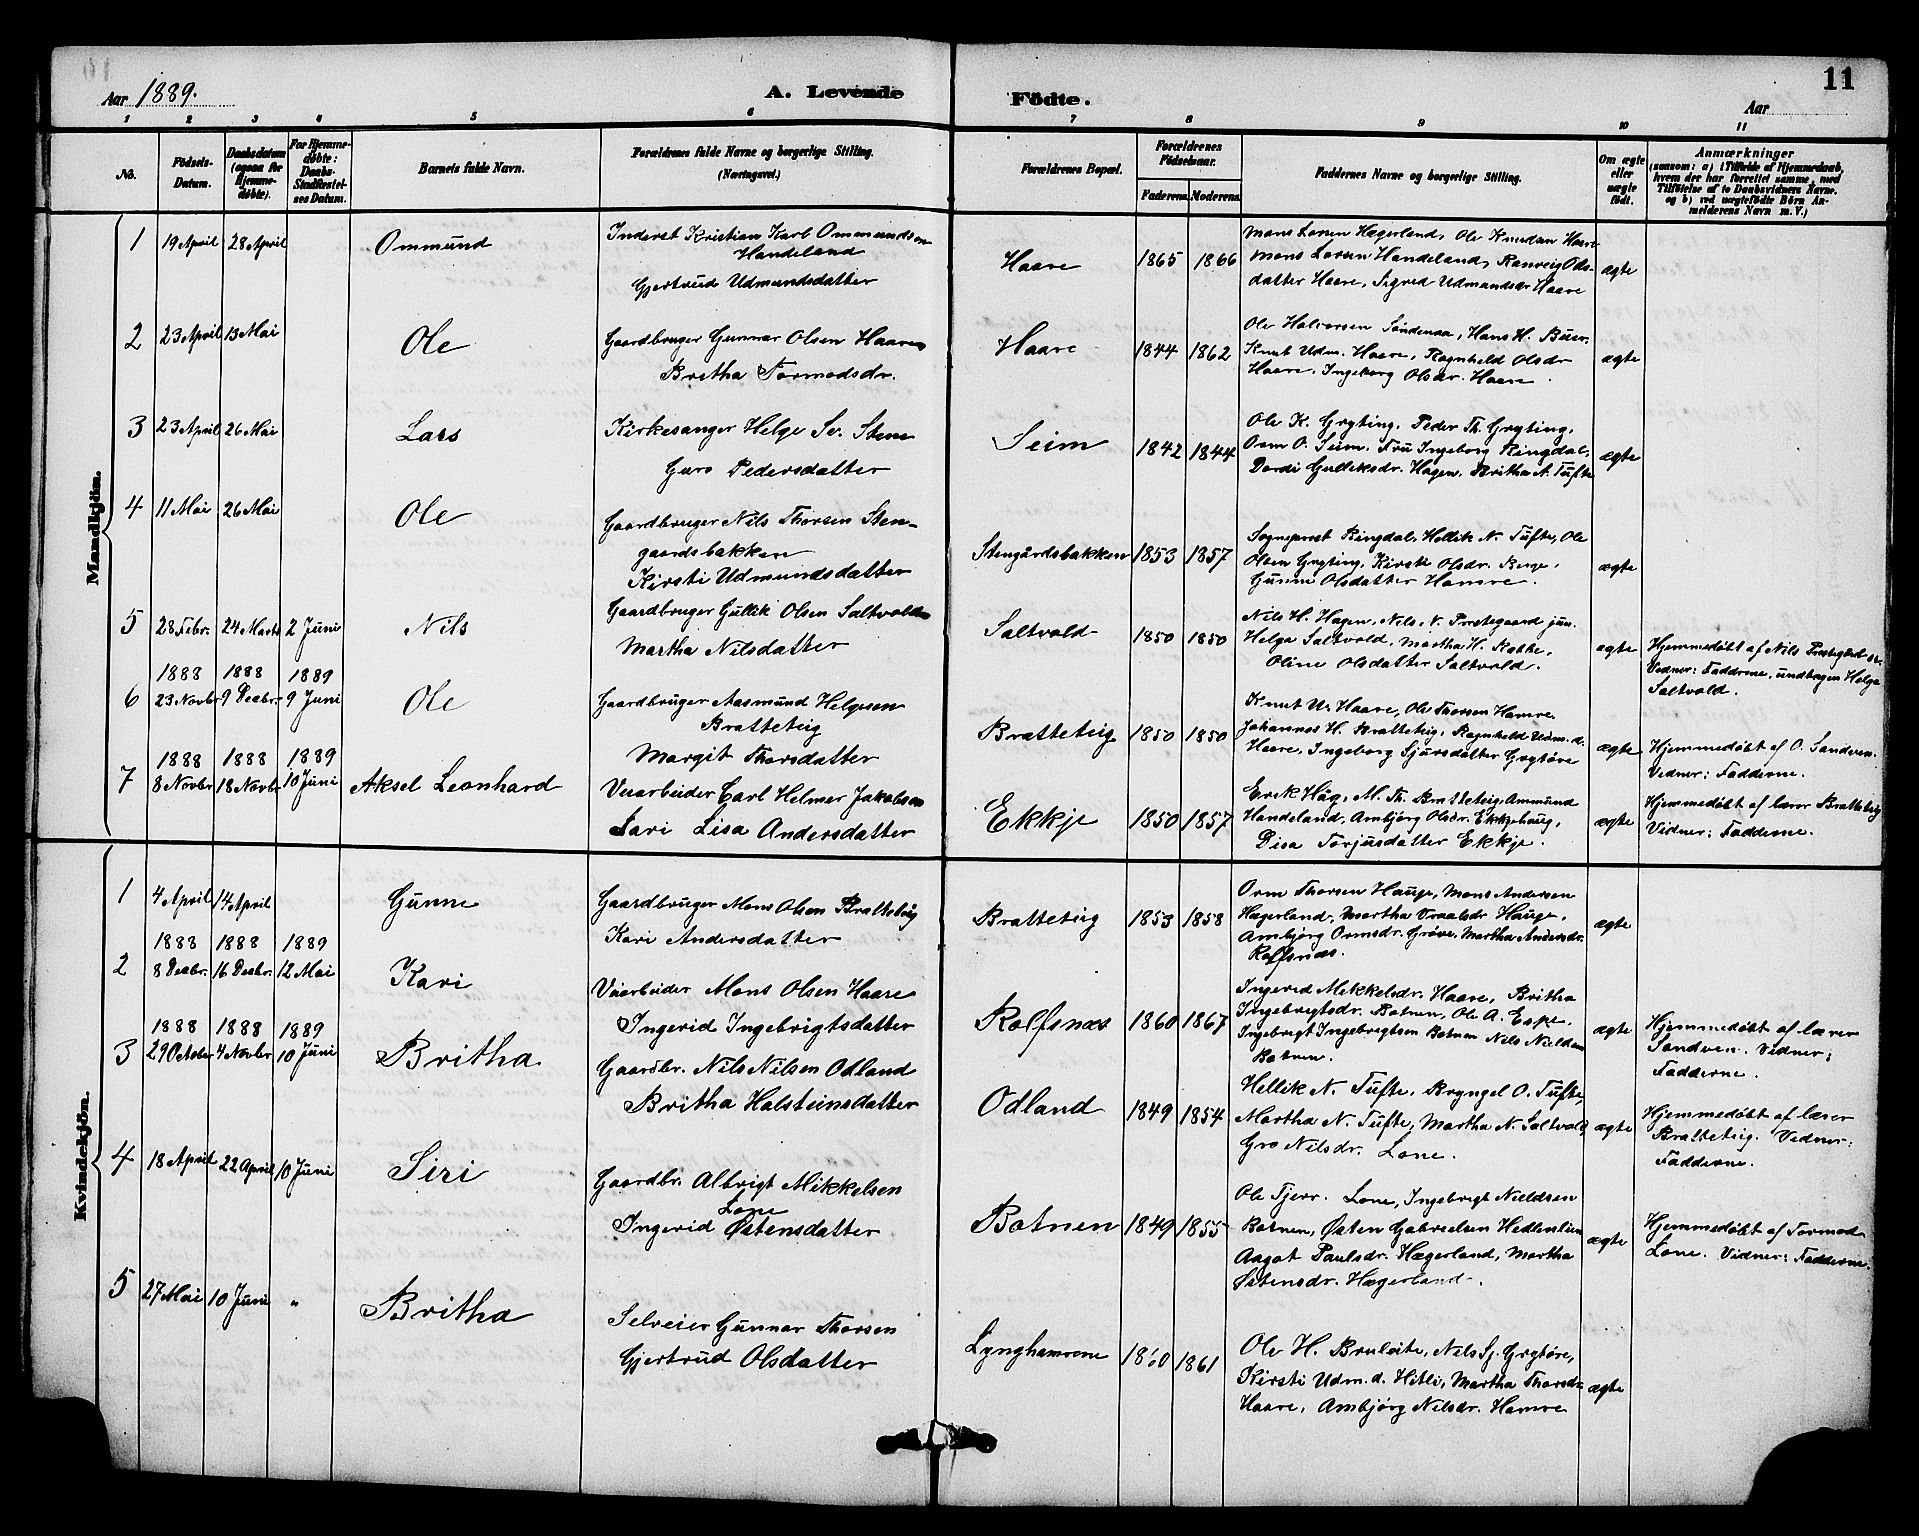 Aar 1889. A. Levende Födte. Aar 11
1 2 3 4 5 6 7 8 9 10 11
No. Födsels-Datum. Daabsdatum (ogsaa for Hjemme-døbte). For Hjemme-døbte: Daabs-Stadfæstel-ses Datum. Barnets fulde Navn. Forældrenes fulde Navne og borgerlige Stilling. (Næringsvei.) Forældrenes Bopæl. Forældrenes Födselsaar. Faderens. Moderens. Faddernes Navne og borgerlige Stilling. Om ægte eller uægte født. Anmærkninger
(saasom: a) i Tilfælde af Hjemmedaab,
hvem der har forrettet samme, med
Tilföielse af to Daabsvidners Navne,
og b) ved uægtefødte Børn An-
melderens Navn m. V.)
Mandkjön.
1 19 April 28 April Ommund
Inderst Kristian Karl Ommundsen
Handeland
Gjertrud Udmundsdatter
Haare 1865 1866
Mons Larsen Hægerland, Ole Knudsen Haare
Mons Larsen Handeland, Ranveig Ols-
datter Haare, Sigrid Udmundsdr Haare
ægte
2 23 April 13 Mai Ole
Gaardbruger Gunnar Olsen Haare
Britha Tormodsdr.
Haare 1844 1862
Ole Halvorsen Söndenaa, Hans H. Buer.
Knut Udm. Haare, Ragnheld Olsdr
Haare, Ingeborg Olsdr. Haare.
ægte
3 23 April 26 Mai Lars
Kirkesanger Helge Sv. Stene
Guro Pedersdatter
Seim 1842 1844
Ole K. Grytting, Peder Th. Grytting,
Orm O. Seim, Fru Ingeborg Ringdal,
Dordi Gulleiksdr. Hagen, Britha N. Tufte
ægte
4 11 Mai 26 Mai Ole
Gaardbruger Nils Thorsen Sten-
gaardsbakken
Kirsti Udmundsdatter
Stengårdsbakken 1853 1857
Sogneprest Ringdal, Hellik N. Tufte, Ole
Olsen Grytting, Kirsti Olsdr.
Gunni Olsdatter Hamre.
ægte
5 28 Febr. 24 Marts 2 Juni Nils
Gaardbruger Gullik Olsen Saltvold
Martha Nilsdatter
Saltvold 1850 1850
Nils H. Hagen, Nils N. Prestegaard jun.
Helga Saltvold, Martha H. Rabbe,
Oline Olsdatter Saltvold.
ægte
Hjemmedøbt af Nils Prestegård sr.
Vidner: Fadderne, undtagen Helga
Saltvold.
1888 1888 1889
6 23 Novbr 9 Decbr. 9 Juni Ole
Gaardbruger Aasmund Helgesen
Bratteteig
Margit Thorsdatter
Bratteteig 1850 1850
Knut U. Haare, Ole Thorsen Hamre,
Johannes H. Bratteteig, Ragnheld Udm.d.
Haare, Ingeborg Sjursdatter Grytöre
ægte
Hjemmedøbt af O. Sandven.
Vidner: Fadderne.
1888 1888 1889
7 8 Novbr 18 Novbr 10 Juni Aksel Leonhard
Veiarbeider Carl Helmer Jakobsen
Sari Lisa Andersdatter
Ekkje 1850 1857
Erik Håg, M. Th. Bratteteig, Ammund
Handeland, Ambjörg Olsdr. Ekkjehaug,
Disa Torjusdatter Ekkje.
ægte
Hjemmedøbt af lærer Bratteteig
Vidner: Fadderne.
Kvindekjön.
1 4 April 14 April Gunne
Gaardbruger Mons Olsen Bratteteig
Kari Andersdatter
Bratteteig 1853 1858
Orm Thorsen Hauge, Mons Andersen
Hægerland, Martha Vraalsdr Hauge,
Ambjörg Ormsdr. Gröve, Martha Andersdr.
Rolfsnæs
ægte
1888 1888 1889
2 8 Decbr. 16 Decbr. 12 Mai Kari
Veiarbeider Mons Olsen Haare
Ingerid Ingebrigtsdatter
Rolfsnæs 1860 1867
Ingerid Mikkelsdr. Haare, Britha
Ingebrigtsdr. Botnen, Ole A. Espe,
Ingebrigt Ingebrigtsen Botnen Nils Nieldsen
Botnen.
ægte
Hjemmedøbt af lærer
Sandven. Vidner:
Fadderne.
1888 1888 1889
3 29 October 4 Novbr 10 Juni Britha
Gaardbr. Nils Nilsen Odland
Britha Holsteinsdatter
Odland 1849 1854
Hellik N. Tufte, Bryngel O. Tufte,
Martha N. Tufte, Martha N. Saltvold,
Gro Nilsdr. Lone.
ægte
Hjemmedøbt af lærer
Bratteteig. Vidner:
Fadderne.
4 18 April 22 April 10 Juni Siri
Gaardbr. Albrigt Mikkelsen
Lone
Ingerid Østensdatter
Botnen 1849 1855
Ole Tjerr. Lone, Ingebrigt Nieldsen
Botnen, Østen Gabrielsen Hedlenlien
Aagot Paulsdr. Hægerland, Martha
Østensdr. Hægerland.
ægte
Hjemmedøbt af Tormod
Lone. Vidner: Fadderne.
5 27 Mai 10 Juni " Britha
Selveier Gunnar Thorsen
Gjertrud Olsdatter
Lynghamrene 1860 1861
Ole H. Bruleite, Nils Sj. Grytöre,
Kirsti Udm.d. Hitli, Martha Thorsdr
Haare, Ambjörg Nilsdr. Hamre
ægte